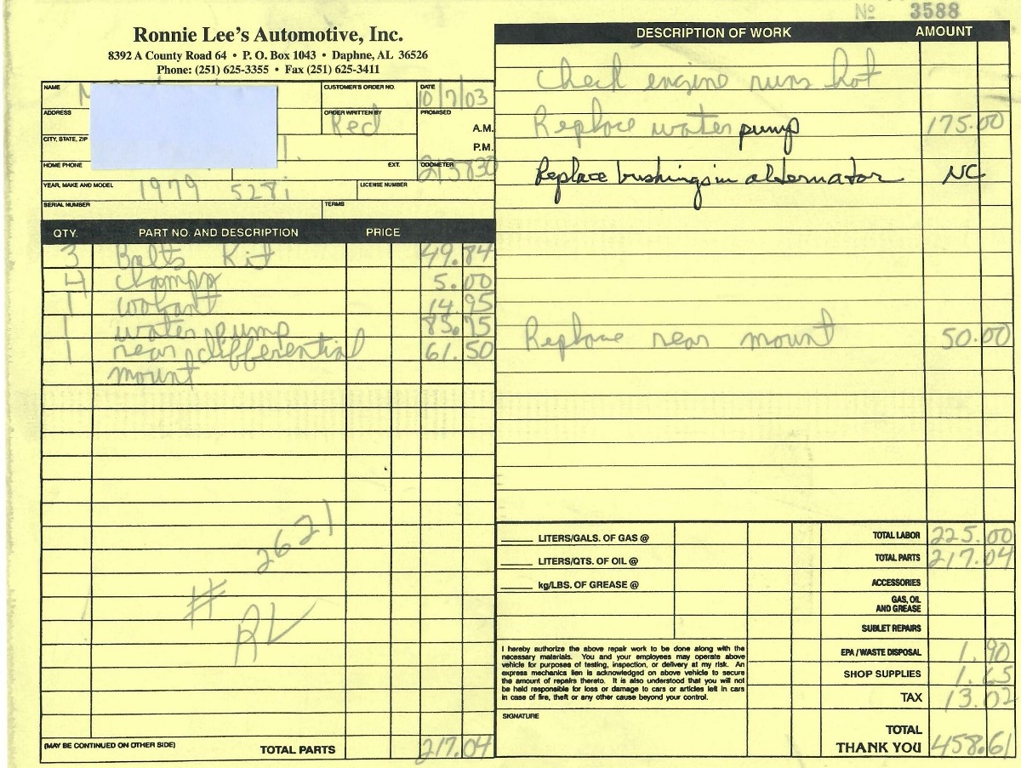 Nº 3588
Ronnie Lee's Automotive, Inc.
8392 A County Road 64 • P. O. Box 1043 • Daphne, AL 36526
Phone: (251) 625-3355 • Fax (251) 625-3411
NAME
CUSTOMER'S ORDER NO.
DATE 10/7/03
ADDRESS
ORDER WRITTEN BY Red
PROMISED A.M. P.M.
CITY, STATE, ZIP
HOME PHONE
EXT.
ODOMETER 213830
YEAR, MAKE AND MODEL 1979 528i
LICENSE NUMBER
SERIAL NUMBER
TERMS
QTY. PART NO. AND DESCRIPTION PRICE
3 Belts Kit 49.84
4 clamps 5.00
1 coolant 14.95
1 water pump 85.75
1 rear differential 61.50
mount
# 2621
RL
(MAY BE CONTINUED ON OTHER SIDE) TOTAL PARTS 217.04
DESCRIPTION OF WORK AMOUNT
Check engine runs hot
Replace water pump 175.00
Replace bushings in alternator NC
Replace rear mount 50.00
LITERS/GALS. OF GAS @
LITERS/QTS. OF OIL @
kg/LBS. OF GREASE @
TOTAL LABOR 225.00
TOTAL PARTS 217.04
ACCESSORIES
GAS, OIL
AND GREASE
SUBLET REPAIRS
EPA / WASTE DISPOSAL 1.90
SHOP SUPPLIES 1.65
TAX 13.02
I hereby authorize the above repair work to be done along with the
necessary materials. You and your employees may operate above
vehicle for purposes of testing, inspection, or delivery at my risk. An
express mechanics lien is acknowledged on above vehicle to secure
the amount of repairs thereto. It is also understood that you will not
be held responsible for loss or damage to cars or articles left in cars
in case of fire, theft or any other cause beyond your control.
SIGNATURE
TOTAL
THANK YOU 458.61